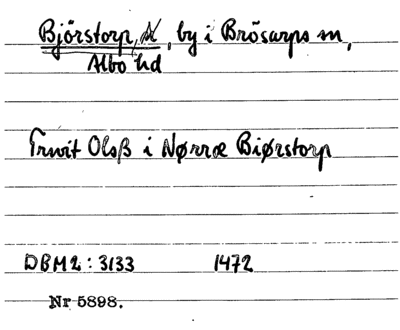 Björstorp, N, by i Brösarps sn,
Albo hd
Truit Olsß i Nørræ Biørstorp
DBM2: 3133 1472
Nr 5898.